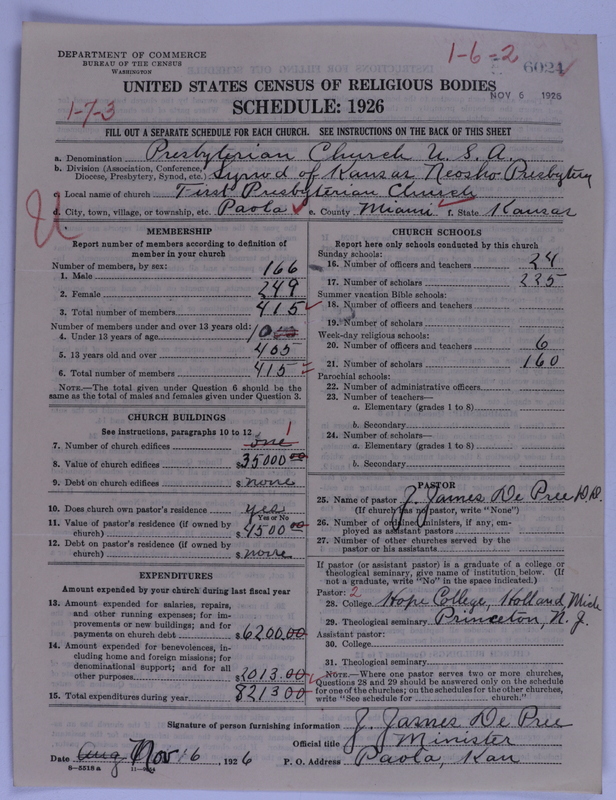 DEPARTMENT OF COMMERCE
BUREAU OF THE CENSUS
WASHINGTON
1-6=2
6024
UNITED STATES CENSUS OF RELIGIOUS BODIES
NOV 6 1926
1-7-3
SCHEDULE: 1926
FILL OUT A SEPARATE SCHEDULE FOR EACH CHURCH. SEE INSTRUCTIONS ON THE BACK OF THIS SHEET
a. Denomination Presbyterian Church U. S. A.
b. Division (Association, Conference, Diocese, Presbytery, Synod, etc.) Synod of Kansas Neosho Presbytery
c. Local name of church First Presbyterian Church
d. City, town, village, or township, etc. Paola e. County Miami f. State Kansas
MEMBERSHIP
Report number of members according to definition of
member in your church
Number of members, by sex:
1. Male 166
2. Female 249
3. Total number of members 415
Number of members under and over 13 years old:
4. Under 13 years of age 10
5. 13 years old and over 405
6. Total number of members 415
NOTE.—The total given under Question 6 should be
same as the total of males and females given under Question 3.
CHURCH BUILDINGS
See instructions, paragraphs 10 to 12
7. Number of church edifices one 1
8. Value of church edifices $35000 00
9. Debt on church edifices $ none
10. Does church own pastor's residence yes
Yes or No
11. Value of pastor's residence (if owned by
church) $4500 00
12. Debt on pastor's residence (if owned by
church) $ none
EXPENDITURES
Amount expended by your church during last fiscal year
13. Amount expended for salaries, repairs,
and other running expenses; for im-
provements or new buildings; and for
payments on church debt $6200.00
14. Amount expended for benevolences, in-
cluding home and foreign missions; for
denominational support; and for all
other purposes 2013.00
15. Total expenditures during year 8213 00
CHURCH SCHOOLS
Report here only schools conducted by this church
Sunday schools:
16. Number of officers and teachers 24
17. Number of scholars 235
Summer vacation Bible schools:
18. Number of officers and teachers
19. Number of scholars
Week-day religious schools:
20. Number of officers and teachers 6
21. Number of scholars 160
Parochial schools:
22. Number of administrative officers
23. Number of teachers—
a. Elementary (grades 1 to 8)
b. Secondary
24. Number of scholars—
a. Elementary (grades 1 to 8)
b. Secondary
PASTOR
25. Name of pastor J. James De Pree D.D.
(If church has no pastor, write "None")
26. Number of ordained ministers, if any, em-
ployed as assistant pastors
27. Number of other churches served by the
pastor or his assistants
If pastor (or assistant pastor) is a graduate of a college or
theological seminary, give name of institution below. (If
not a graduate, write "No" in the space indicated.)
Pastor: 2
28. College Hope College, Holland Mich
29. Theological seminary Princeton, N. J.
Assistant pastor:
30. College
31. Theological seminary
NOTE.—Where one pastor serves two or more churches,
Questions 28 and 29 should be answered only on the schedule
for one of the churches; on the schedules for the other churches,
write "See schedule for church."
Signature of person furnishing information J. James De Pree
Official title Minister
Date Aug Nov 6, 1926 P. O. Address Paola, Kan
8-5518 a